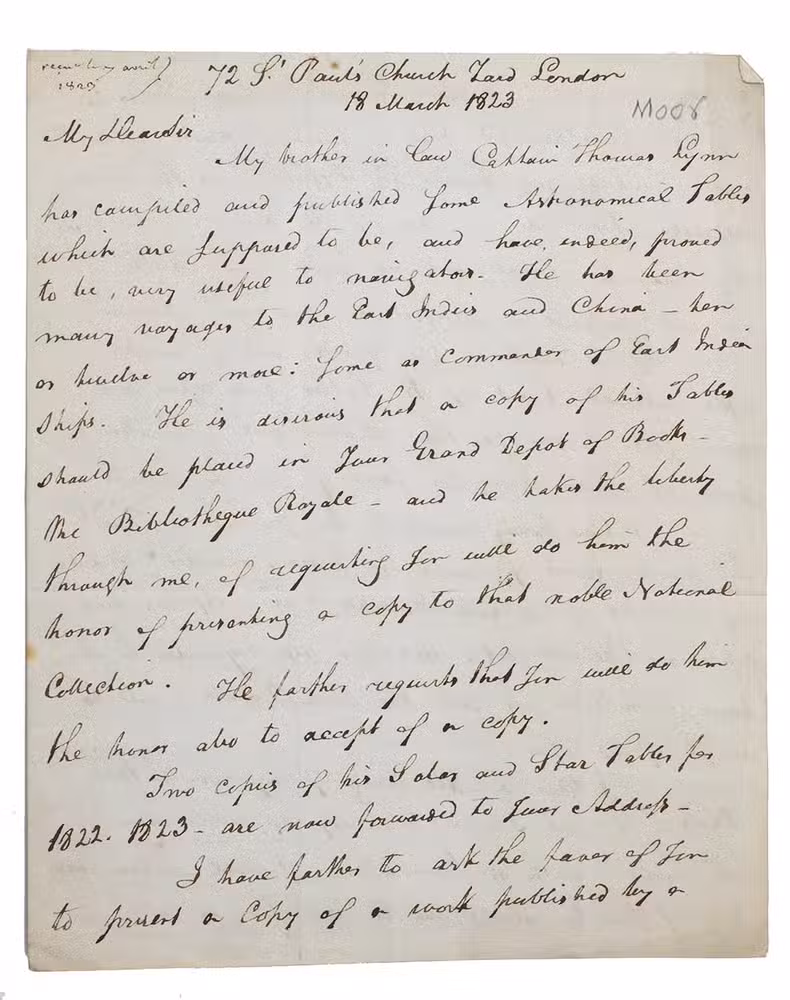 avril
1823
72 St Paul's Church Yard London
18 March 1823
Moor
My Dear Sir
My brother in law Captain Thomas Lynn
has compiled and published some Astronomical Tables
which are supposed to be, and have, indeed, proved
to be, very useful to navigators. He has been
many voyages to the East Indies and China – ten
or twelve or more: some as Commander of East India
ships. He is desirous that a copy of his Tables
should be placed in Your Grand Depot of Books –
the Bibliotheque Royale – and he takes the liberty
through me, of requesting You will do him the
honor of presenting a copy to that noble National
Collection. He farther requests that You will do him
the honor also to accept of a copy.
Two copies of his Solar and Star Tables for
1822. 1823 – are now forwarded to Your Address –
I have farther to ask the favor of You
to present a Copy of a work published by a